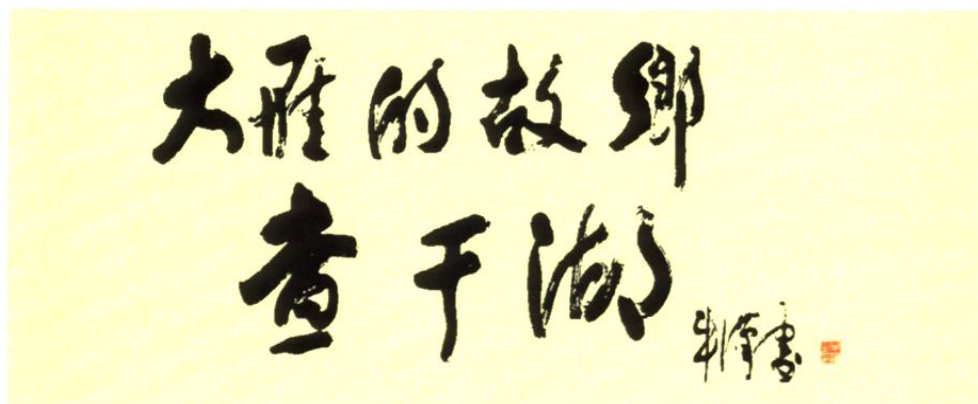 大雁的故鄉
查干湖
牛漢書